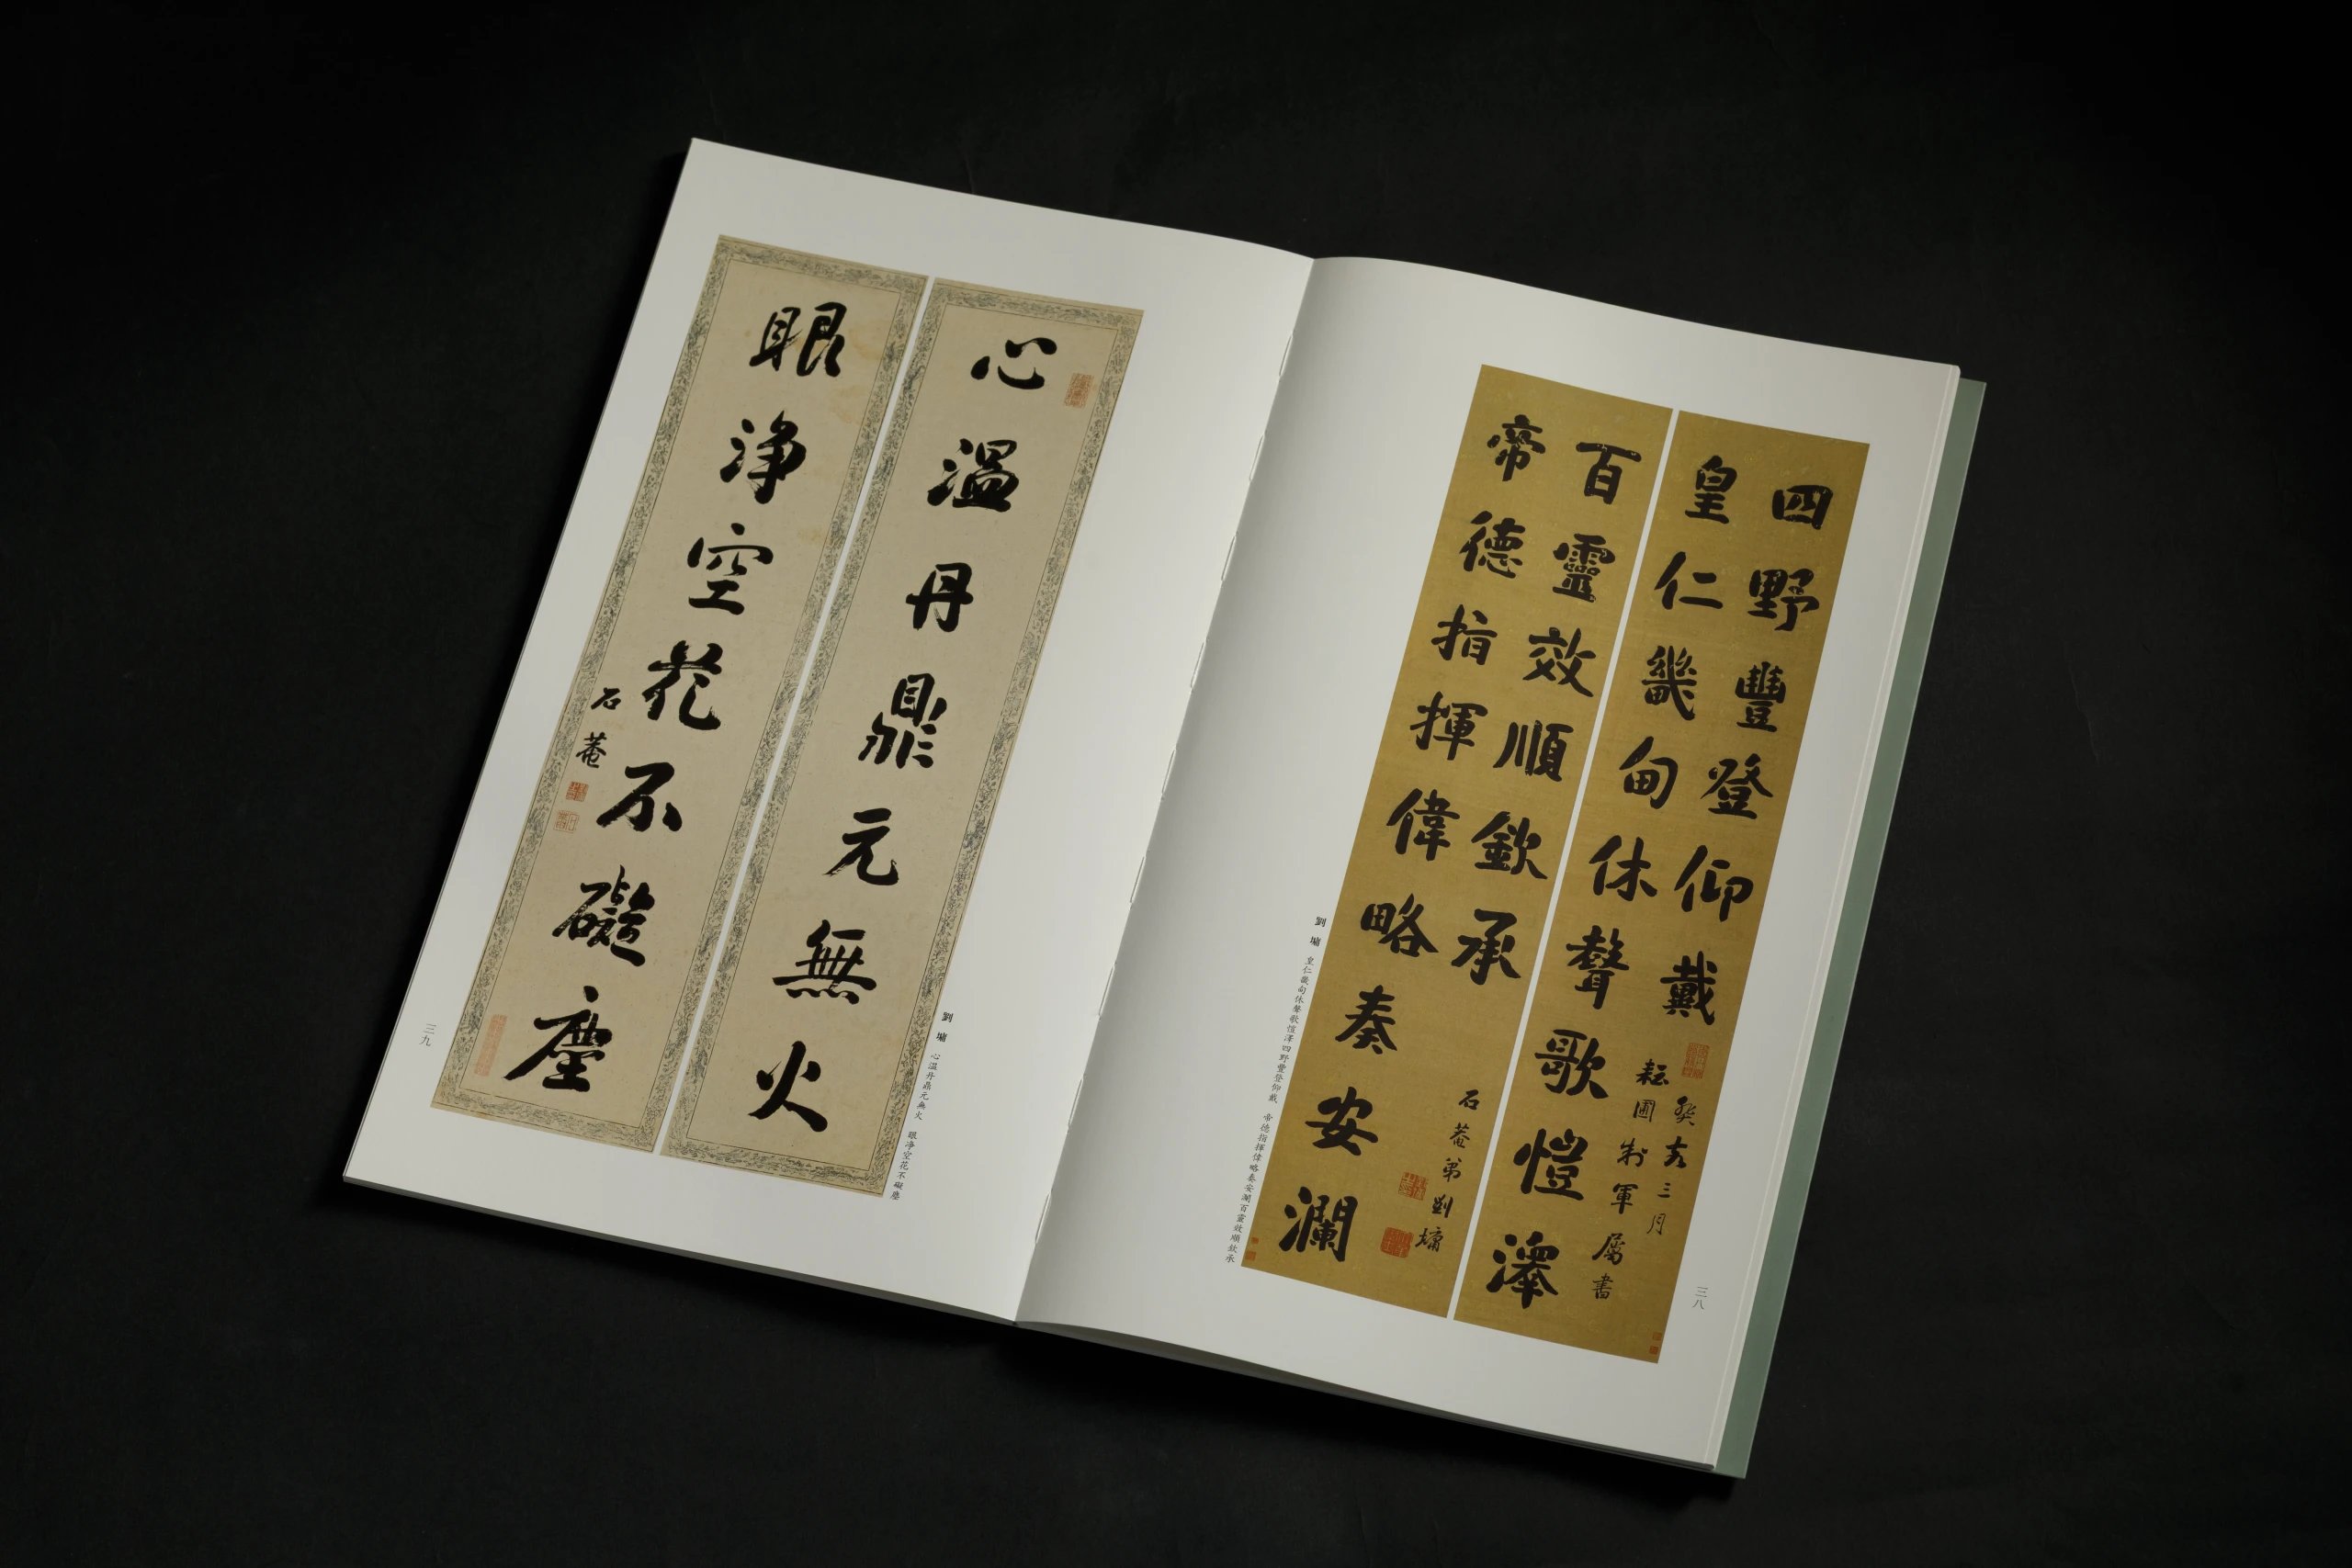 四野豐登仰戴
皇仁畿甸休聲歌愷澤
癸亥三月
耘圃制軍屬書
百靈效順欽承
帝德指揮偉略奏安瀾
石菴弟劉墉
劉墉 皇仁畿甸休聲歌愷澤四野豐登仰戴 帝德指揮偉略奏安瀾百靈效順欽承
三八
心溫丹鼎元無火
眼淨空花不礙塵
石菴
劉墉 心溫丹鼎元無火 眼淨空花不礙塵
三九